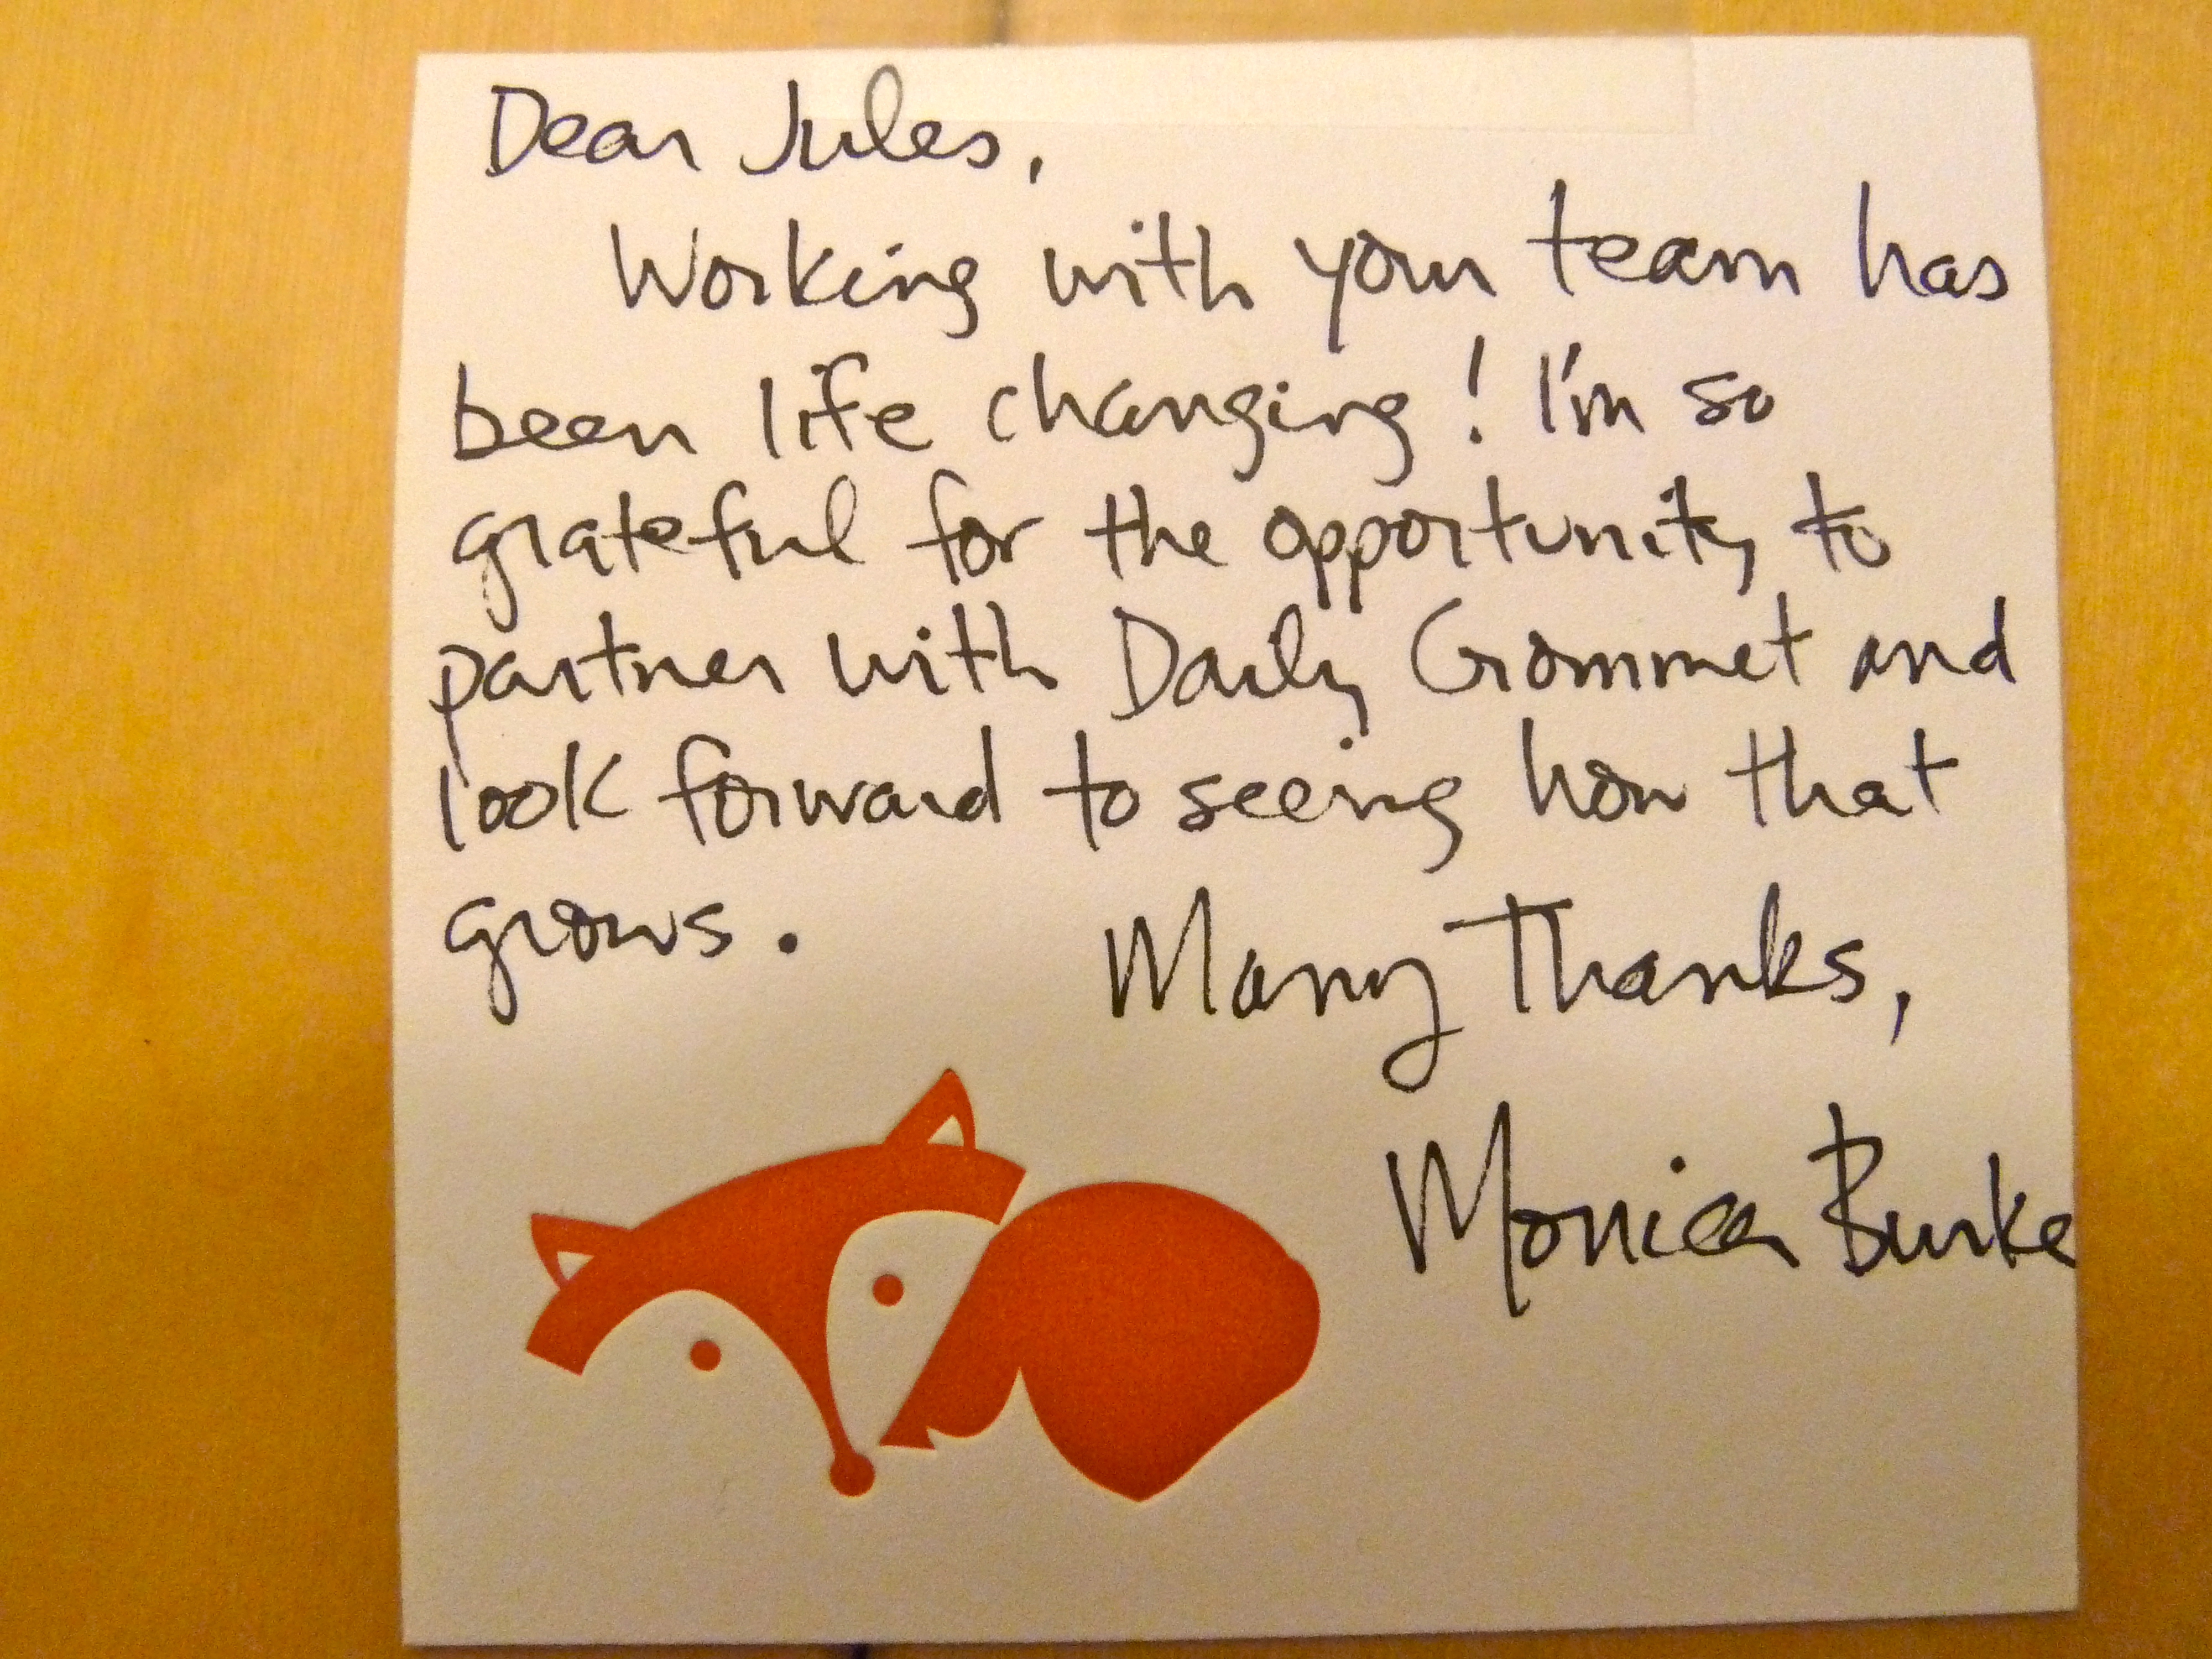 Dear Jules,
Working with your team has
been life changing! I'm so
grateful for the opportunity to
partner with Daily Grommet and
look forward to seeing how that
grows.
Many Thanks,
Monica Burke